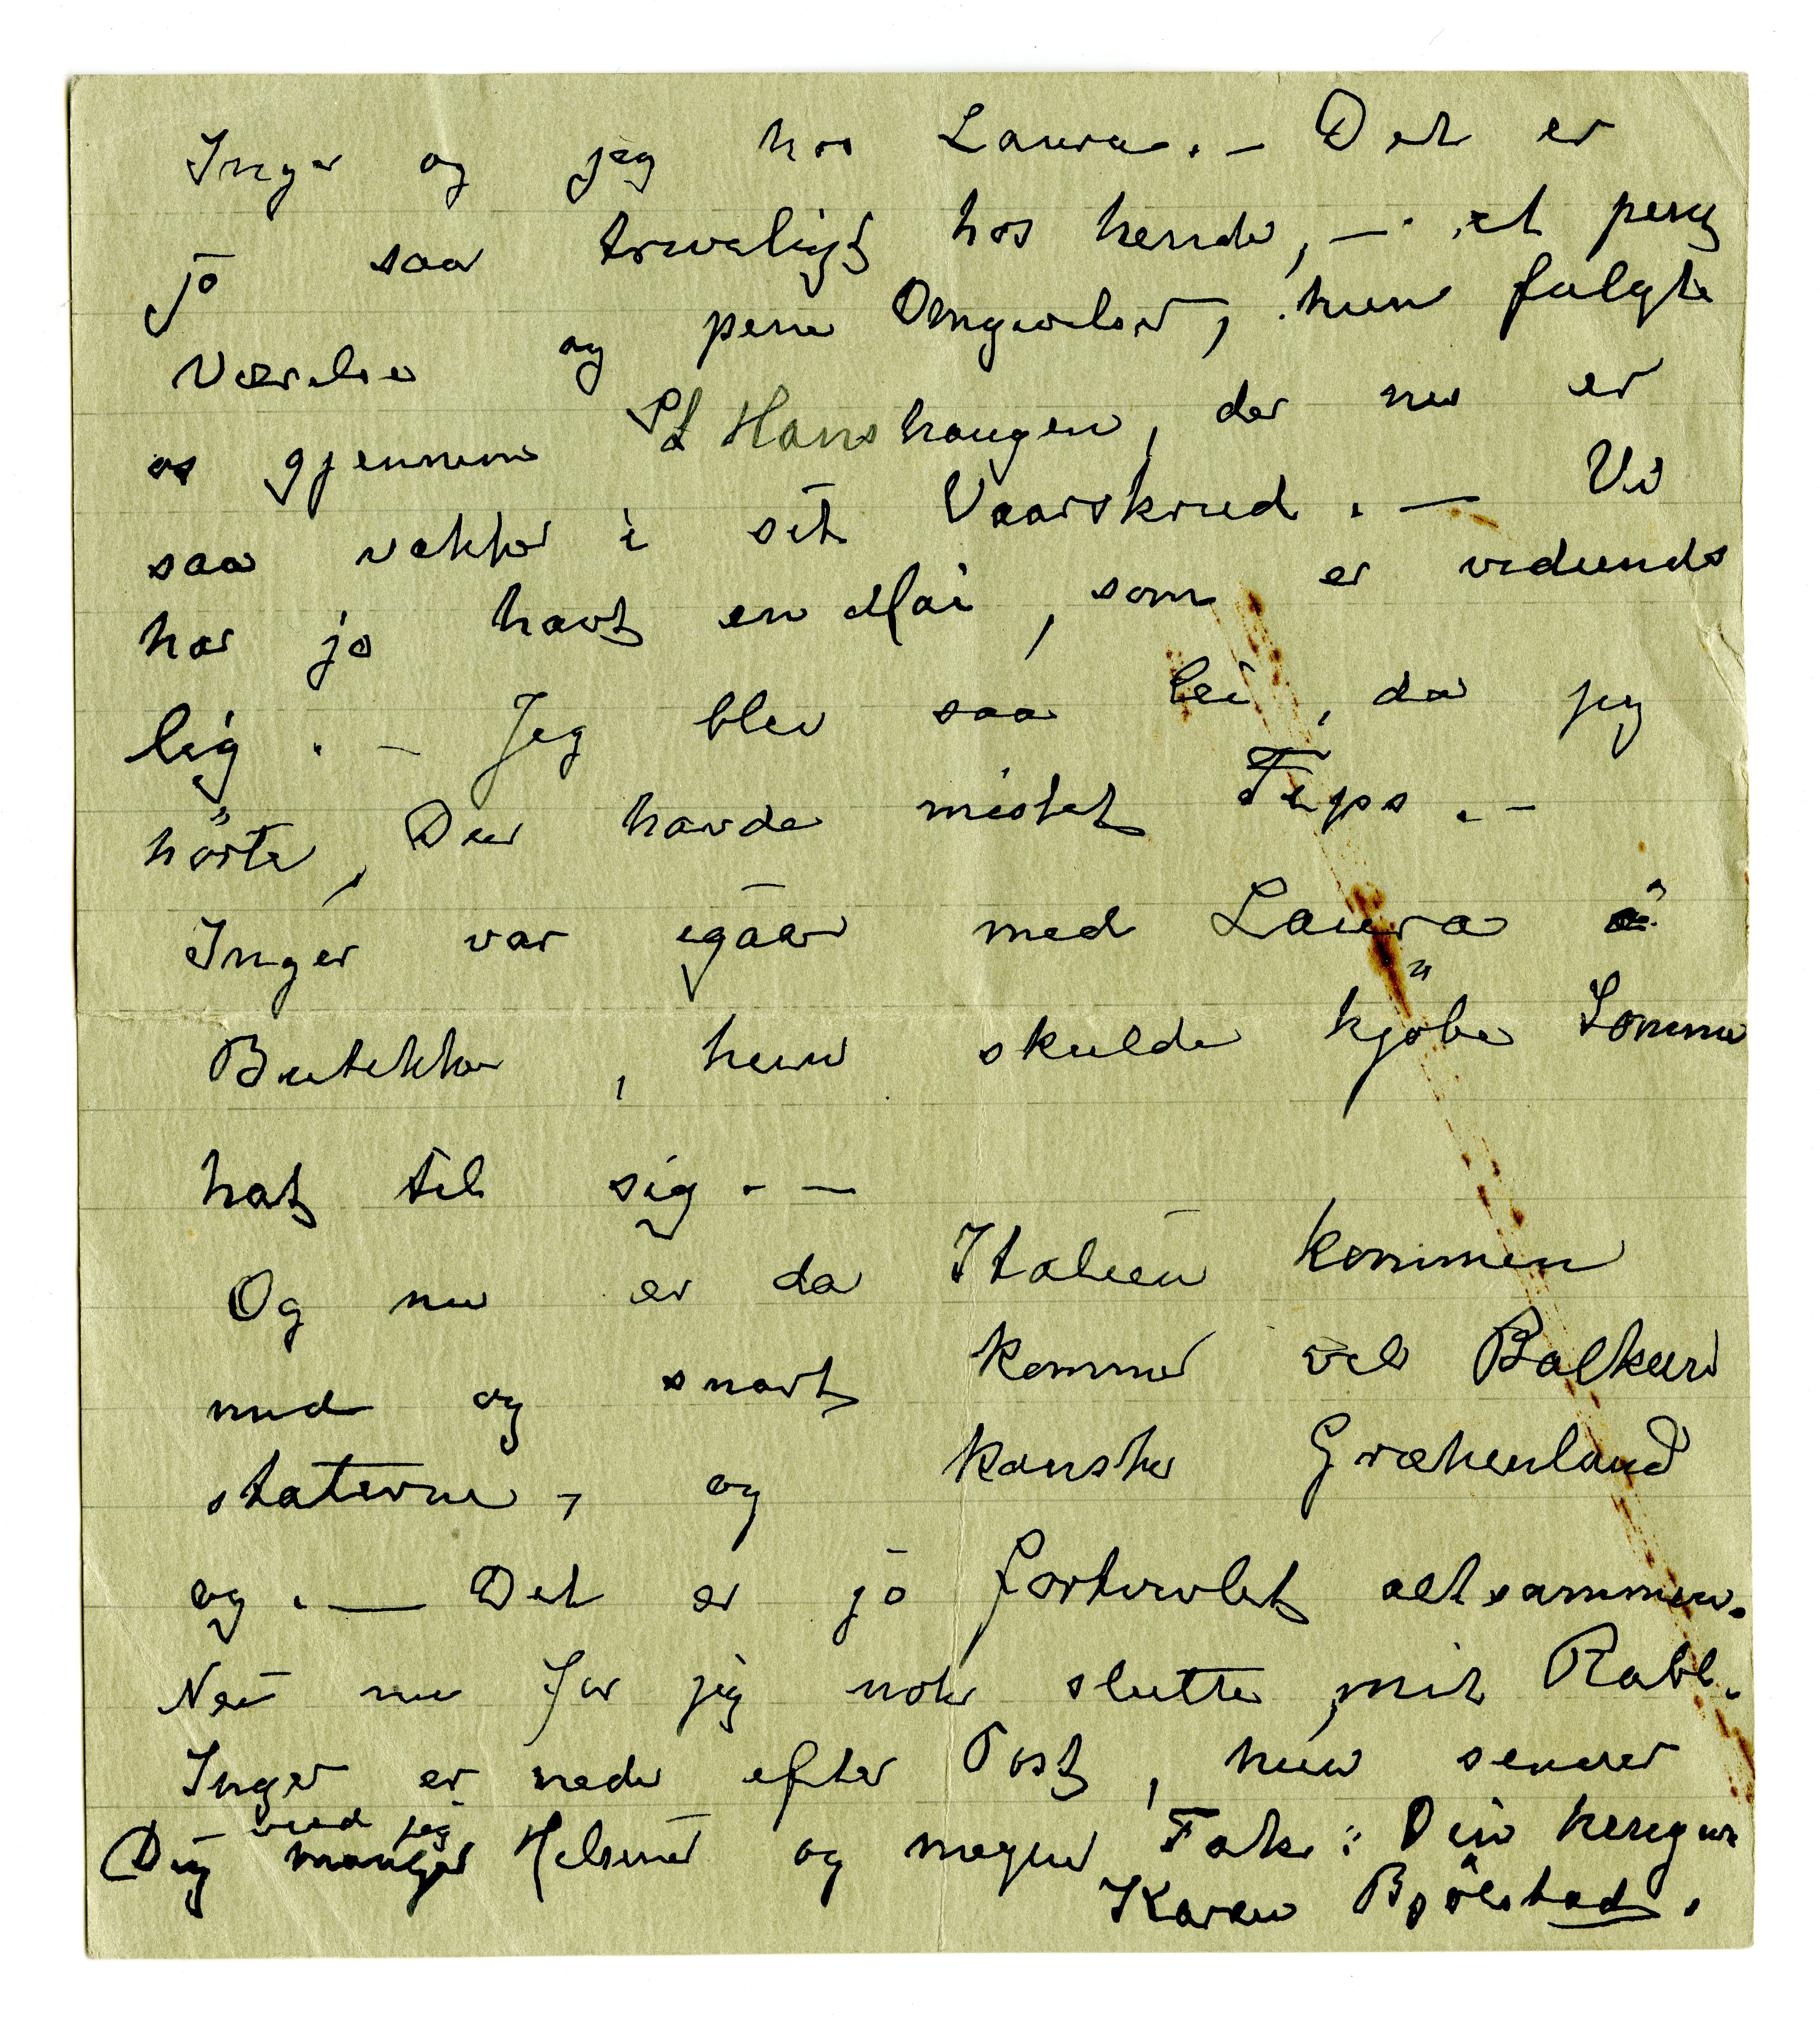 Inger og jeg hos Laura. – Det er
jo saa triveligt hos hende, – et pent
Værelse og pene Omgivelser, hun fulgte
os gjennem St Hanshaugen, der nu er
saa vakker i sit Vaarskrud. – Vi
har jo havt en Mai, som er vidunder
lig. – Jeg blev saa lei, da jeg
hörte, Du havde mistet Fips. –
Inger var igaar med Laura i
Butikker, hun skulde kjöbe Sommer
hat til sig. –
Og nu er da Italien kommen
med og snart kommer vel Balkan
staterne, og kanske Grækenland
og. – Det er jo fortvivlet altsammen.
Nei nu faar jeg nok slutte mit Rabl.
Inger er nede efter Post, hun sender
Dig med jeg Helsener og megen Tak: Din hengivne
Karen Bjölstad.